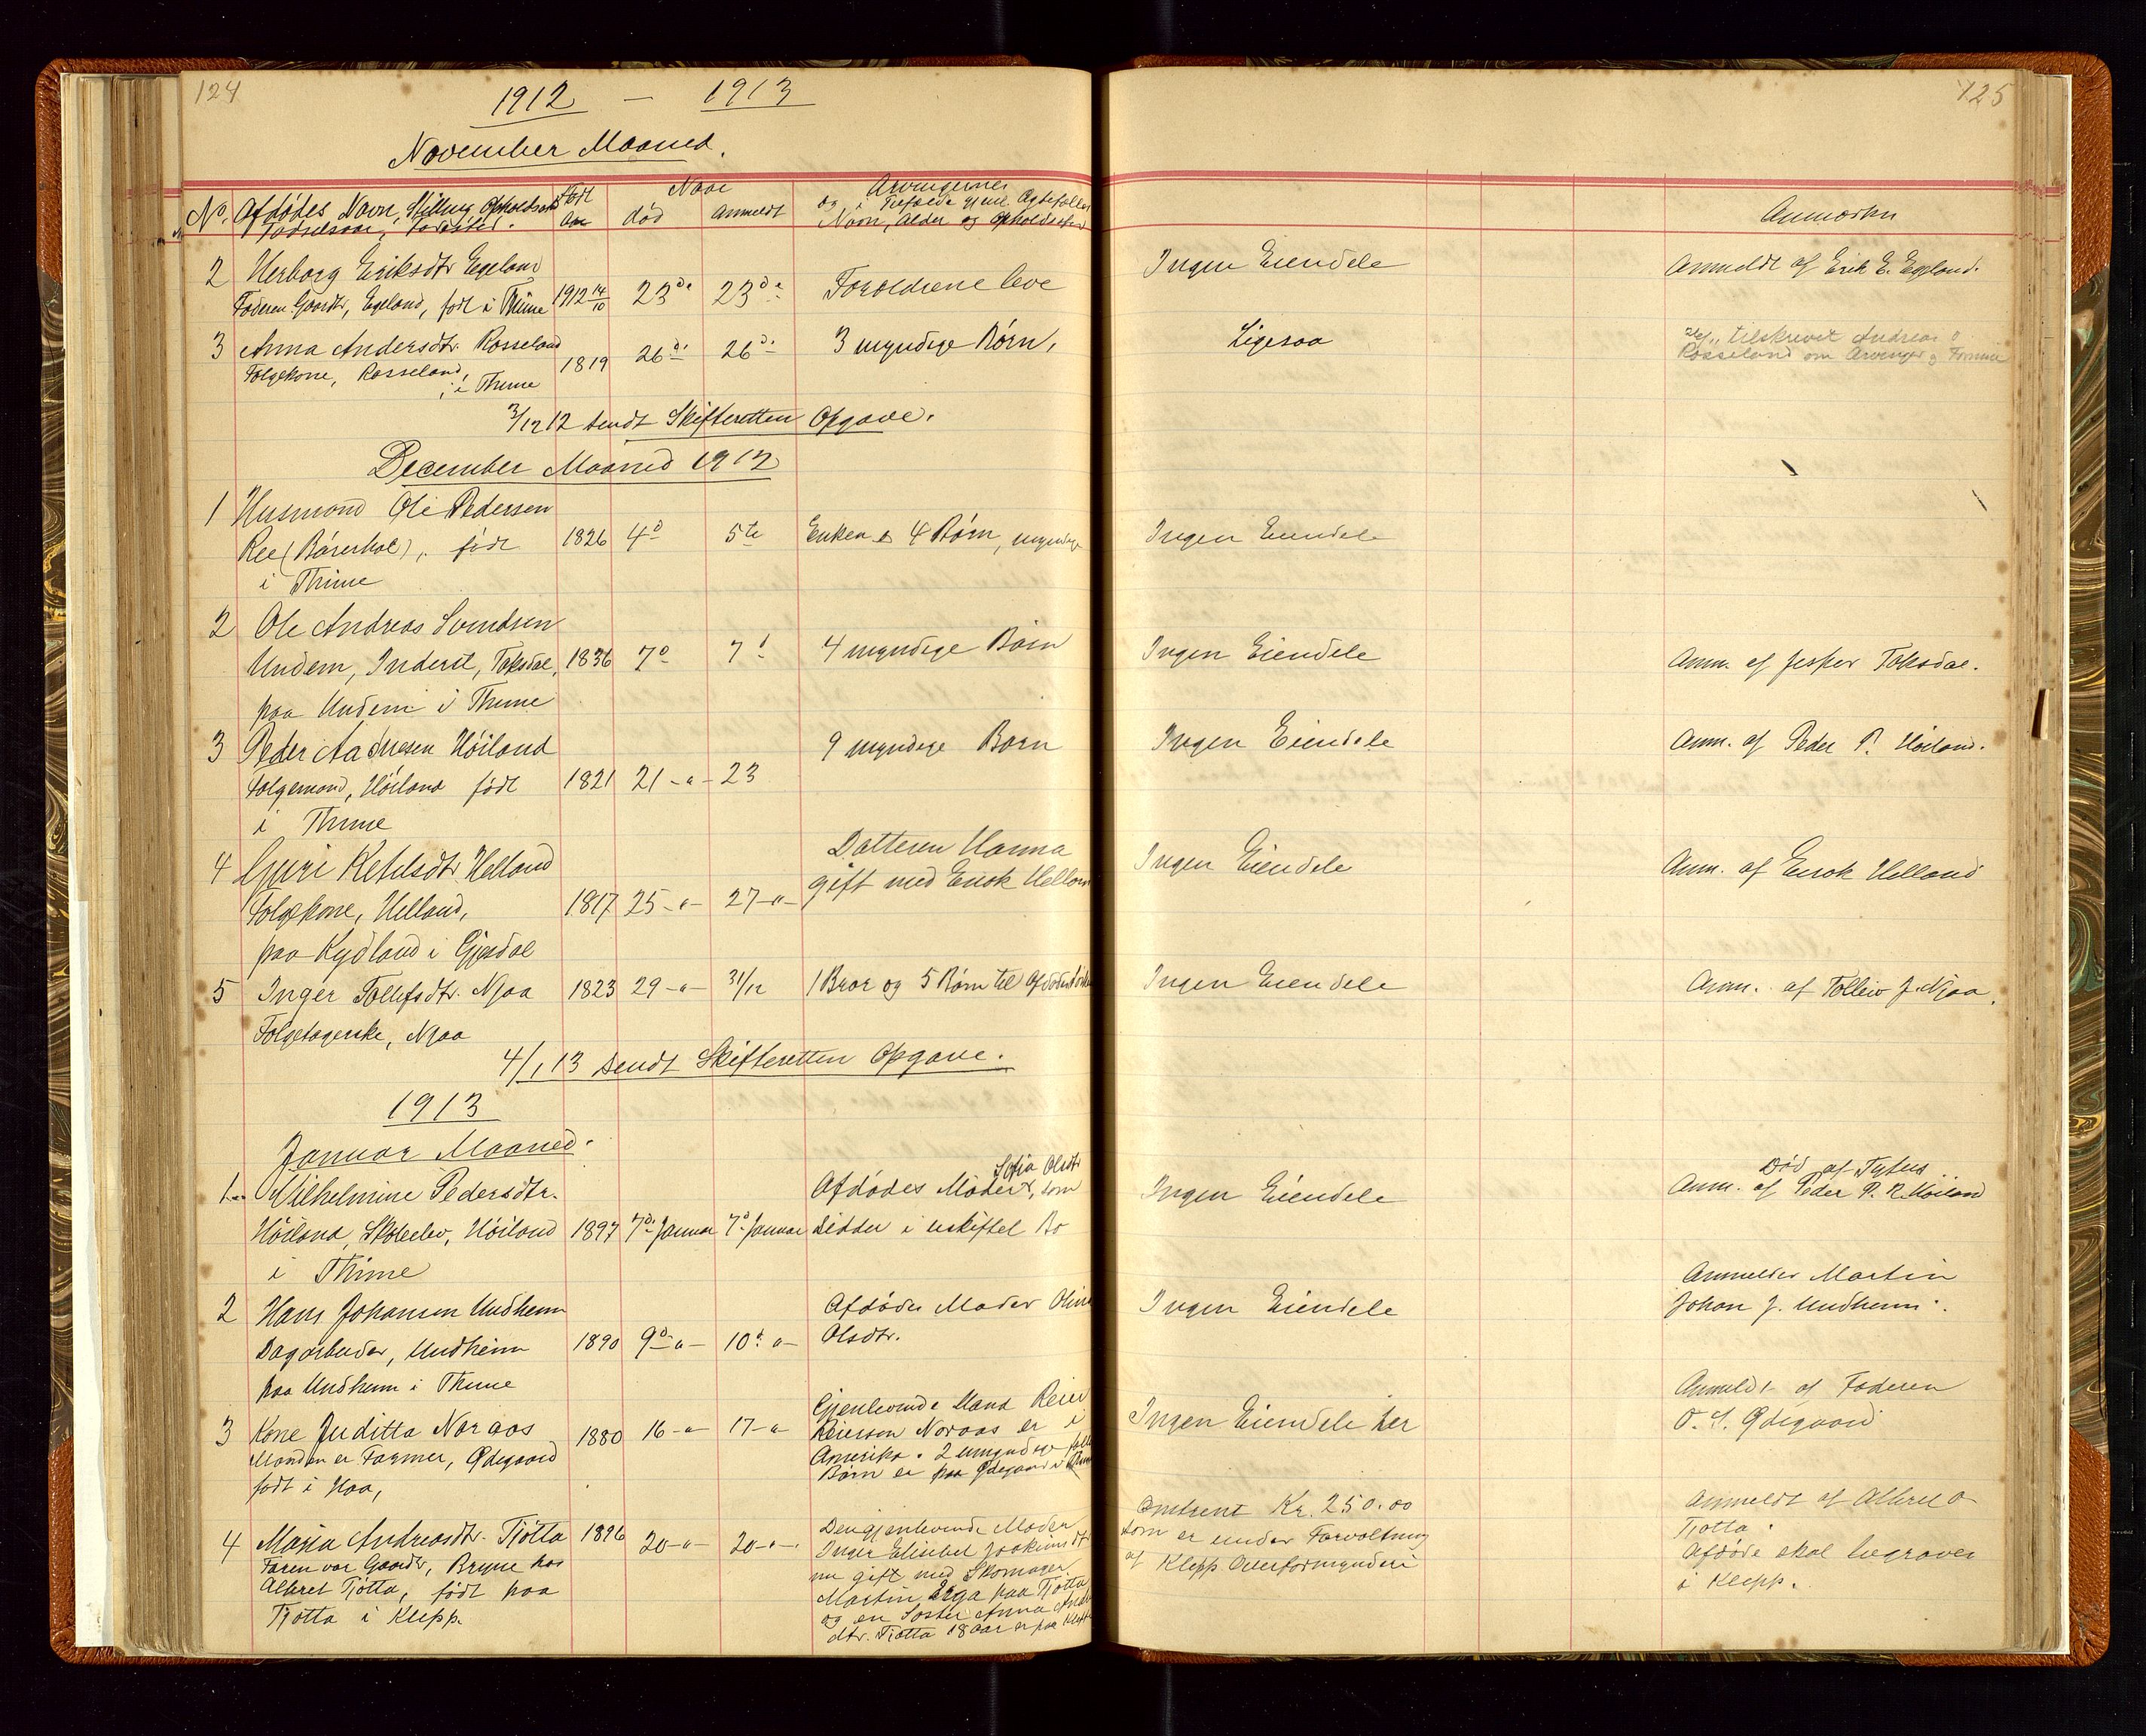 124
1912 — 1913
November Maaned.
No. Afdødes Navn, Stilling, Opholdssted
Fødselsaar, Fødested.
Født
Aar
Naar
død
Anmeldt
Arvingernes
og i Tilfælde gjenl. Ægtefælles
Navn, Alder og Opholdssted
2 Herborg Eriksdtr Egeland
Faderen Gaardbr, Egeland, født i Thime 1912 14/10 23de 23de Forældrene leve
3 Anna Andersdtr. Rosseland
Folgekone, Rosseland,
i Thime
1819 26de 26de 3 myndige Børn,
3/12 12 sendt Skifteretten Opgave.
December Maaned 1912
1 Husmand Ole Pedersen
Ree (          ), født 1826 4d 5te Enken & 4 Børn, myndige
i Thime
2 Ole Andreas Svendsen
Undem, Inderst, Taksdal, 1836 7d 7d 4 myndige Børn
paa Undem i Thime
3 Peder Aadnesen Høiland 9 myndige Børn
Folgemand, Høiland født 1821 21 -"- 23
i Thime
4 Guri Ketilsdtr Helland
Folgekone, Helland, 1817 25 -"- 27 -"-
paa Kydland i Gjesdal
Datteren Hanna
gift med Enok Helland
5 Inger Tollefsdtr. Njaa 1823 29 -"- 31/12 1 Bror og 5 Børn til Afdødes
Folgetagerske, Njaa
4/1 13 sendt Skifteretten Opgave.
1913
Januar Maaned.
1 Wilhelmine Pedersdtr.
Høiland, Skoleelev, Høiland 1897 7de Januar 7de Januar
i Thime
Sofia Olsdtr
Afdødes Moder, som
sidder i uskiftet Bo
2 Hans Johansen Undheim
Dagarbeider, Undheim 1890 9d -"- 10d -"-
paa Undheim i Thime
Afdødes Moder Oline
Olsdtr.
3 Kone Juditta Noraas 1880 16 -"- 17 -"-
Manden er Farmer, Ødegaard
født i Haa,
Gjenlevende Mand Reier
Reierson Noraas er i
Amerika. 2 umyndige fælles
Børn er paa Ødegaard i Thime
4 Maria Andreasdtr. Tjøtta 1896 20 -"- 20 -"-
Faren var Gaardbr, Bryne hos
Albret Tjøtta, født paa
Tjøtta i Klepp.
Den gjenlevende Moder
Inger Elisebet Joakimsdtr
nu gift med Skomager
Martin Erga paa Tjøtta
og en Søster Anna
dtr. Tjøtta 18 Aar er paa Klepp
125
Anmærkn
Ingen Eiendele Anmeldt af Erik E. Egeland.
Ligesaa
tilskrevet Andreas
Rosseland om Arvinger og Formue
Ingen Eiendele
Ingen Eiendele Anm. af Jesper Taksdal.
Ingen Eiendele Anm. af Peder P. Høiland.
Ingen Eiendele Anm. af Enok Helland
Ingen Eiendele Anm. af Tolleiv J. Njaa.
Ingen Eiendele
Død af Tyfus
Anm. af Peder P. R. Høiland
Ingen Eiendele
Anmeldes Martin
Johan J. Undheim.
Ingen Eiendele her
Anmeldt af Faderen
O. S. Ødegaard
Omtrent Kr. 250.00
som er under Forvaltning
af Klepp Overformynderi
Anmeldt af Albret O
Tjøtta.
Afdøde skal begraves
i Klepp.